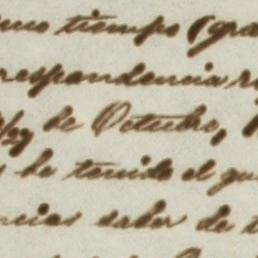 smo tiempo (gra
respondencia r
/29 de Octubre,
s he tenido el gu
ncias saber de t